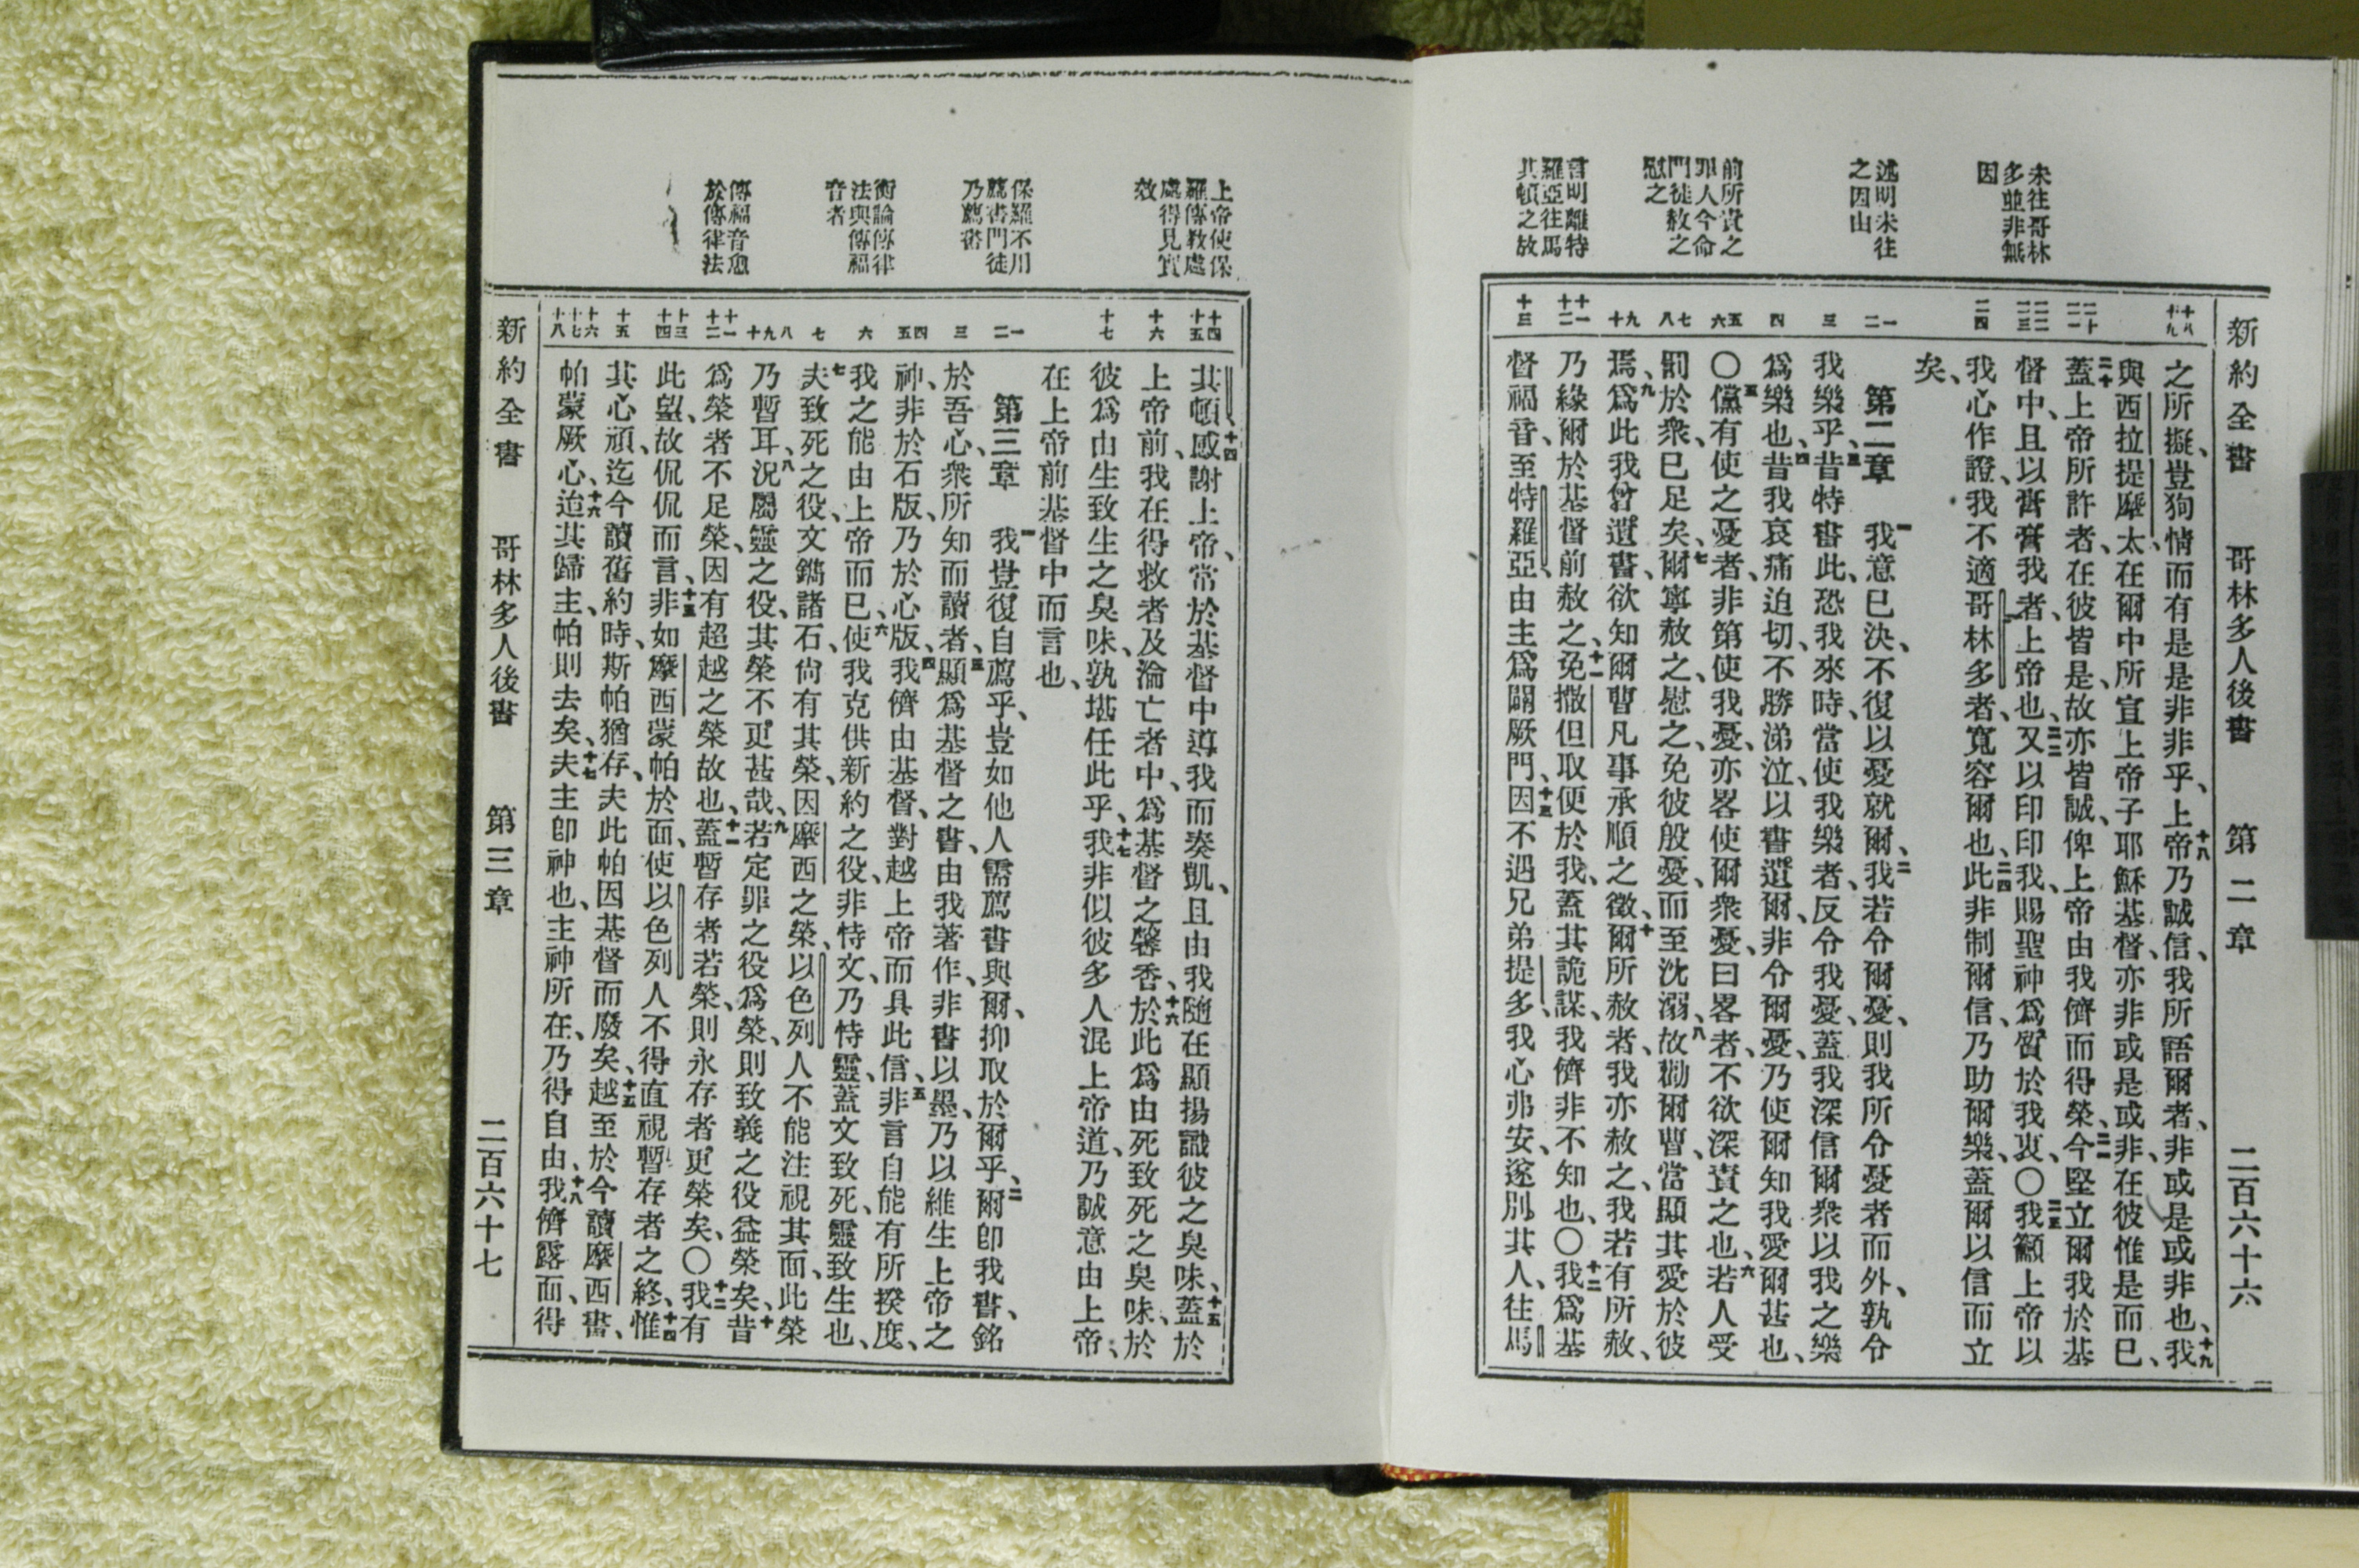 新約全書 哥林多人後書 第二章 二百六十六
未往哥林
多並非無
因
述明未往
之因由
前所責之
罪人今命
門徒赦之
慰之
言明離特
羅亞往馬
其頓之故
十八 十九
二十 二一
二二 二三
二四
一 二
三
四
五 六
七 八
九 十
十一 十二
十三
之所擬、豈狥情而有是是非非乎、十八上帝乃誠信、我所語爾者、非或是或非也、十九我
與西拉提摩太、在爾中所宣上帝子耶穌基督、亦非或是或非、在彼惟是而已、
二十蓋上帝所許者、在彼皆是、故亦皆誠、俾上帝由我儕而得榮、二一今堅立爾我於基
督中、且以膏膏我者、上帝也、二二又以印印我、賜聖神爲質於我衷、〇二三我籲上帝以
我心作證、我不適哥林多者、寬容爾也、二四此非制爾信、乃助爾樂、蓋爾以信而立
矣、
第二章 一我意已決、不復以憂就爾、二我若令爾憂、則我所令憂者而外、孰令
我樂乎、三昔特書此、恐我來時、當使我樂者、反令我憂、蓋我深信爾衆以我之樂
爲樂也、四昔我哀痛迫切、不勝涕泣、以書遺爾、非令爾憂、乃使爾知我愛爾甚也、
〇五儻有使之憂者、非第使我憂、亦畧使爾衆憂、曰畧者、不欲深責之也、六若人受
罰於衆、已足矣、七爾寧赦之、慰之、免彼殷憂、而至沈溺、八故勸爾曹、當顯其愛於彼
焉、九爲此我曾遺書、欲知爾曹凡事承順之徵、十爾所赦者、我亦赦之、我若有所赦、
乃緣爾於基督前赦之、十一免撒但取便於我、蓋其詭謀、我儕非不知也、〇十二我爲基
督福音、至特羅亞、由主爲闢厥門、十三因不遇兄弟提多、我心弗安、遂別其人、往馬
上帝使保
羅傳教處
處得見實
效
保羅不用
薦書門徒
乃薦書
衡論傳律
法與傳福
音者
傳福音愈
於傳律法
十四 十五
十六
十七
一 二
三
四 五
六
七
八 九 十
十一 十二
十三 十四
十五
十六 十七 十八
其頓、十四感謝上帝、常於基督中導我而奏凱、且由我隨在顯揚識彼之臭味、十五蓋於
上帝前、我在得救者及淪亡者中、爲基督之馨香、十六於此爲由死致死之臭味、於
彼爲由生致生之臭味、孰堪任此乎、十七我非似彼多人混上帝道、乃誠意由上帝、
在上帝前基督中而言也、
第三章 一我豈復自薦乎、豈如他人需薦書與爾、抑取於爾乎、二爾卽我書、銘
於吾心、衆所知而讀者、三顯爲基督之書、由我著作、非書以墨、乃以維生上帝之
神、非於石版、乃於心版、四我儕由基督、對越上帝而具此信、五非言自能有所揆度、
我之能由上帝而已、六使我克供新約之役、非恃文、乃恃靈、蓋文致死、靈致生也、
七夫致死之役、文鐫諸石、尙有其榮、因摩西之榮、以色列人不能注視其面、此榮
乃暫耳、八況屬靈之役、其榮不更甚哉、九若定罪之役爲榮、則致義之役益榮矣、十昔
爲榮者不足榮、因有超越之榮故也、十一蓋暫存者若榮、則永存者更榮矣、〇十二我有
此望、故侃侃而言、十三非如摩西蒙帕於面、使以色列人不得直視暫存者之終、十四惟
其心頑、迄今讀舊約時、斯帕猶存、夫此帕因基督而廢矣、十五越至於今、讀摩西書、
帕蒙厥心、十六迨其歸主、帕則去矣、十七夫主卽神也、主神所在、乃得自由、十八我儕露面、得
新約全書 哥林多人後書 第三章 二百六十七